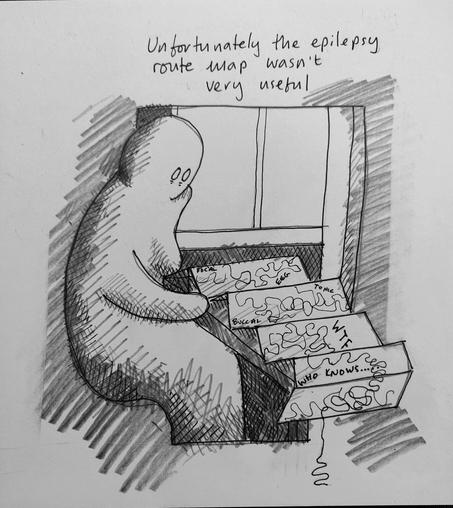 Unfortunately the epilepsy
route map wasn't
very useful
FOCAL
EEG
TONIC
BUCCAL
WTF
WHO KNOWS....